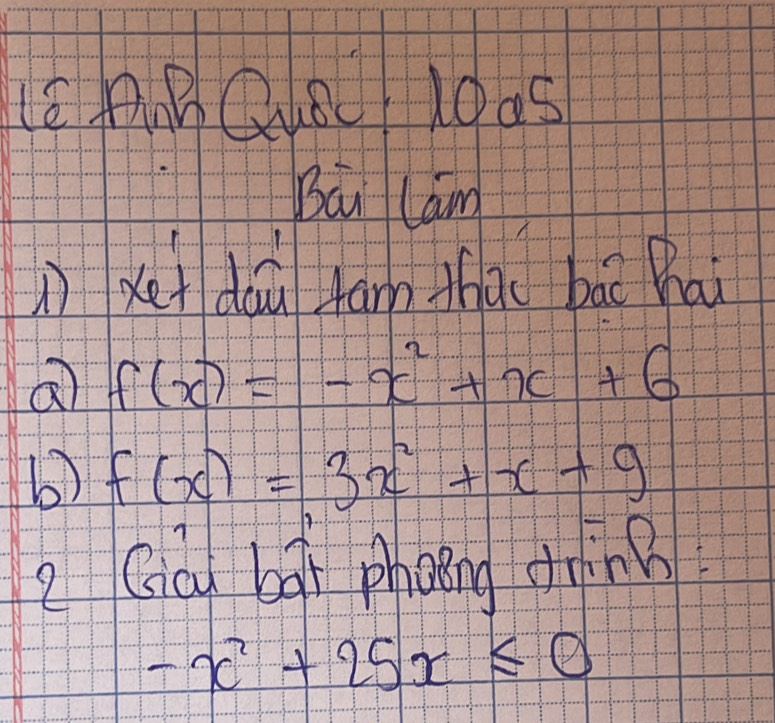 Lê Đình Quốc: 10a5
Bài làm
1) xét dấu tam thức bậc hai
a) f(x) = -x² + x + 6
b) f(x) = 3x² + x + 9
2 Giải bất phương trình:
-x² + 25x ≤ 0